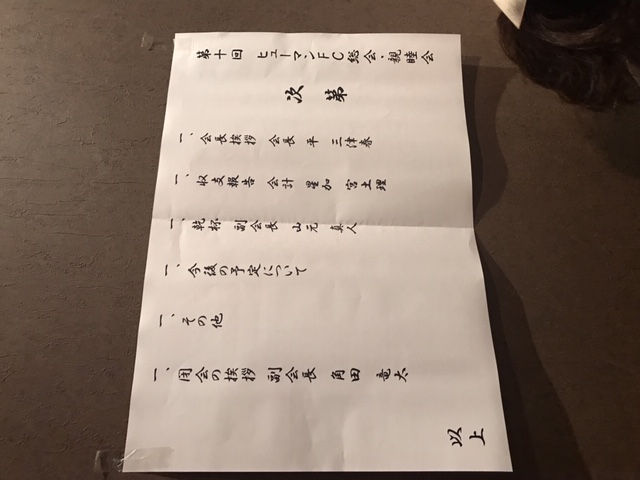 第十回 ヒューマンFC総会・親睦会
次第
一、会長挨拶 会長 平 三津春
一、収支報告 会計 星加 富士理
一、乾杯 副会長 山元 真人
一、今後の予定について
一、その他
一、閉会の挨拶 副会長 角田 竜太
以上